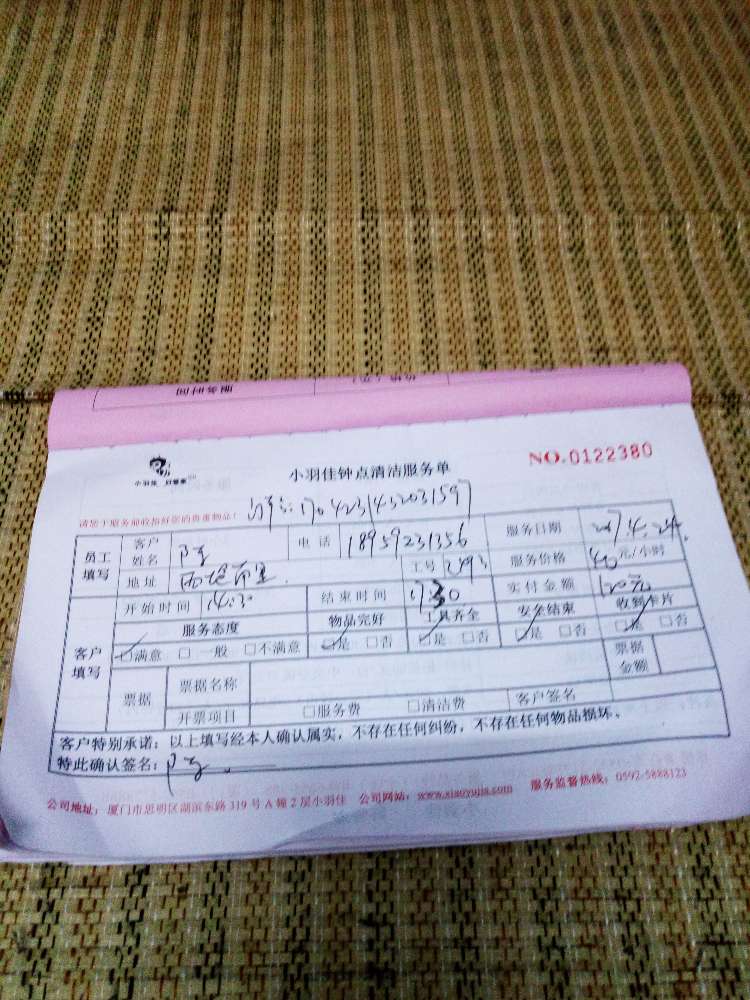 服务时间
小羽佳 好管家
小羽佳钟点清洁服务单
NO.0122380
请您于服务前收拾好您的贵重物品!
1704231432031597
员工填写 客户姓名 电话 18959231356 服务日期
地址 工号 2493 服务价格 40元/小时
客户填写 开始时间 14:30 结束时间 17:30 实付金额 120元
服务态度 物品完好 工具齐全 安全结束 收到卡片
☑满意 □一般 □不满意 ☑是 □否 ☑是 □否 ☑是 □否 ☑是 □否
票据 票据名称 票据金额
开票项目 □服务费 □清洁费 客户签名
客户特别承诺:以上填写经本人确认属实,不存在任何纠纷,不存在任何物品损坏。
特此确认签名:
公司地址:厦门市思明区湖滨东路319号A幢2层小羽佳 公司网站:www.xiaoyujia.com 服务监督热线:0592-5888123